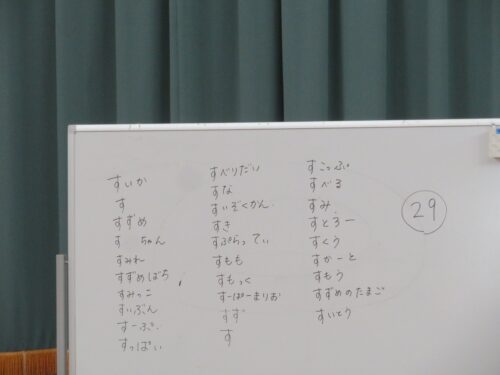 すいか
す
すずめ
す ちゃん
すみれ
すずめばち
すみっこ
すいぶん
すーぷ
すっぱい
すべりだい
すな
すいぞくかん
すき
すぷらってぃ
すもも
すもっく
すーぱーまりお
すず
す
すこっぷ
すべる
すみ
すとろー
すくう
すかーと
すもう
すずめのたまご
すいとう
29